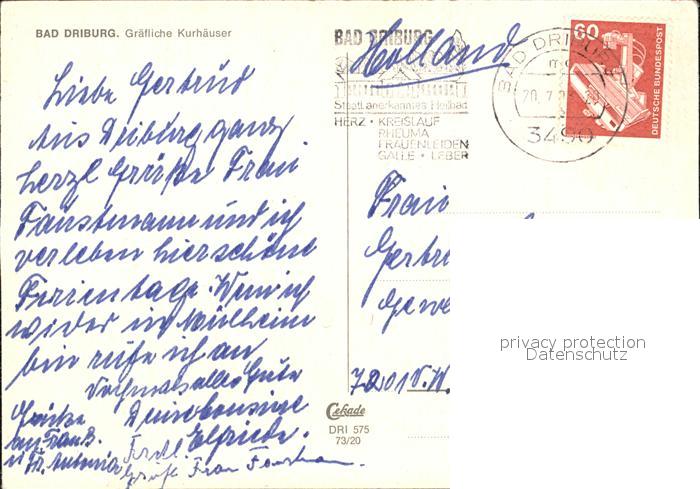 BAD DRIBURG. Gräfliche Kurhäuser
Liebe Gertrud
Aus Driburg ganz
herzl Grüße Frau
Faustmann und ich
verleben hier schöne
Ferientage. Wenn ich
wider in Mülheim
bin rufe ich an
Nochmals alles Gute
Deine
Elfriede.
Grüße
an Frau B.
u Fr. Antonia
Grüße Frau
BAD DRIBURG
Staatl. anerkanntes Heilbad
HERZ · KREISLAUF
RHEUMA
FRAUENLEIDEN
GALLE · LEBER
Holland
BAD DRIBURG
3490
60
DEUTSCHE BUNDESPOST
Frau
Gertru
7201 V.W.
privacy protection
Datenschutz
Cekade
DRI 575
73/20